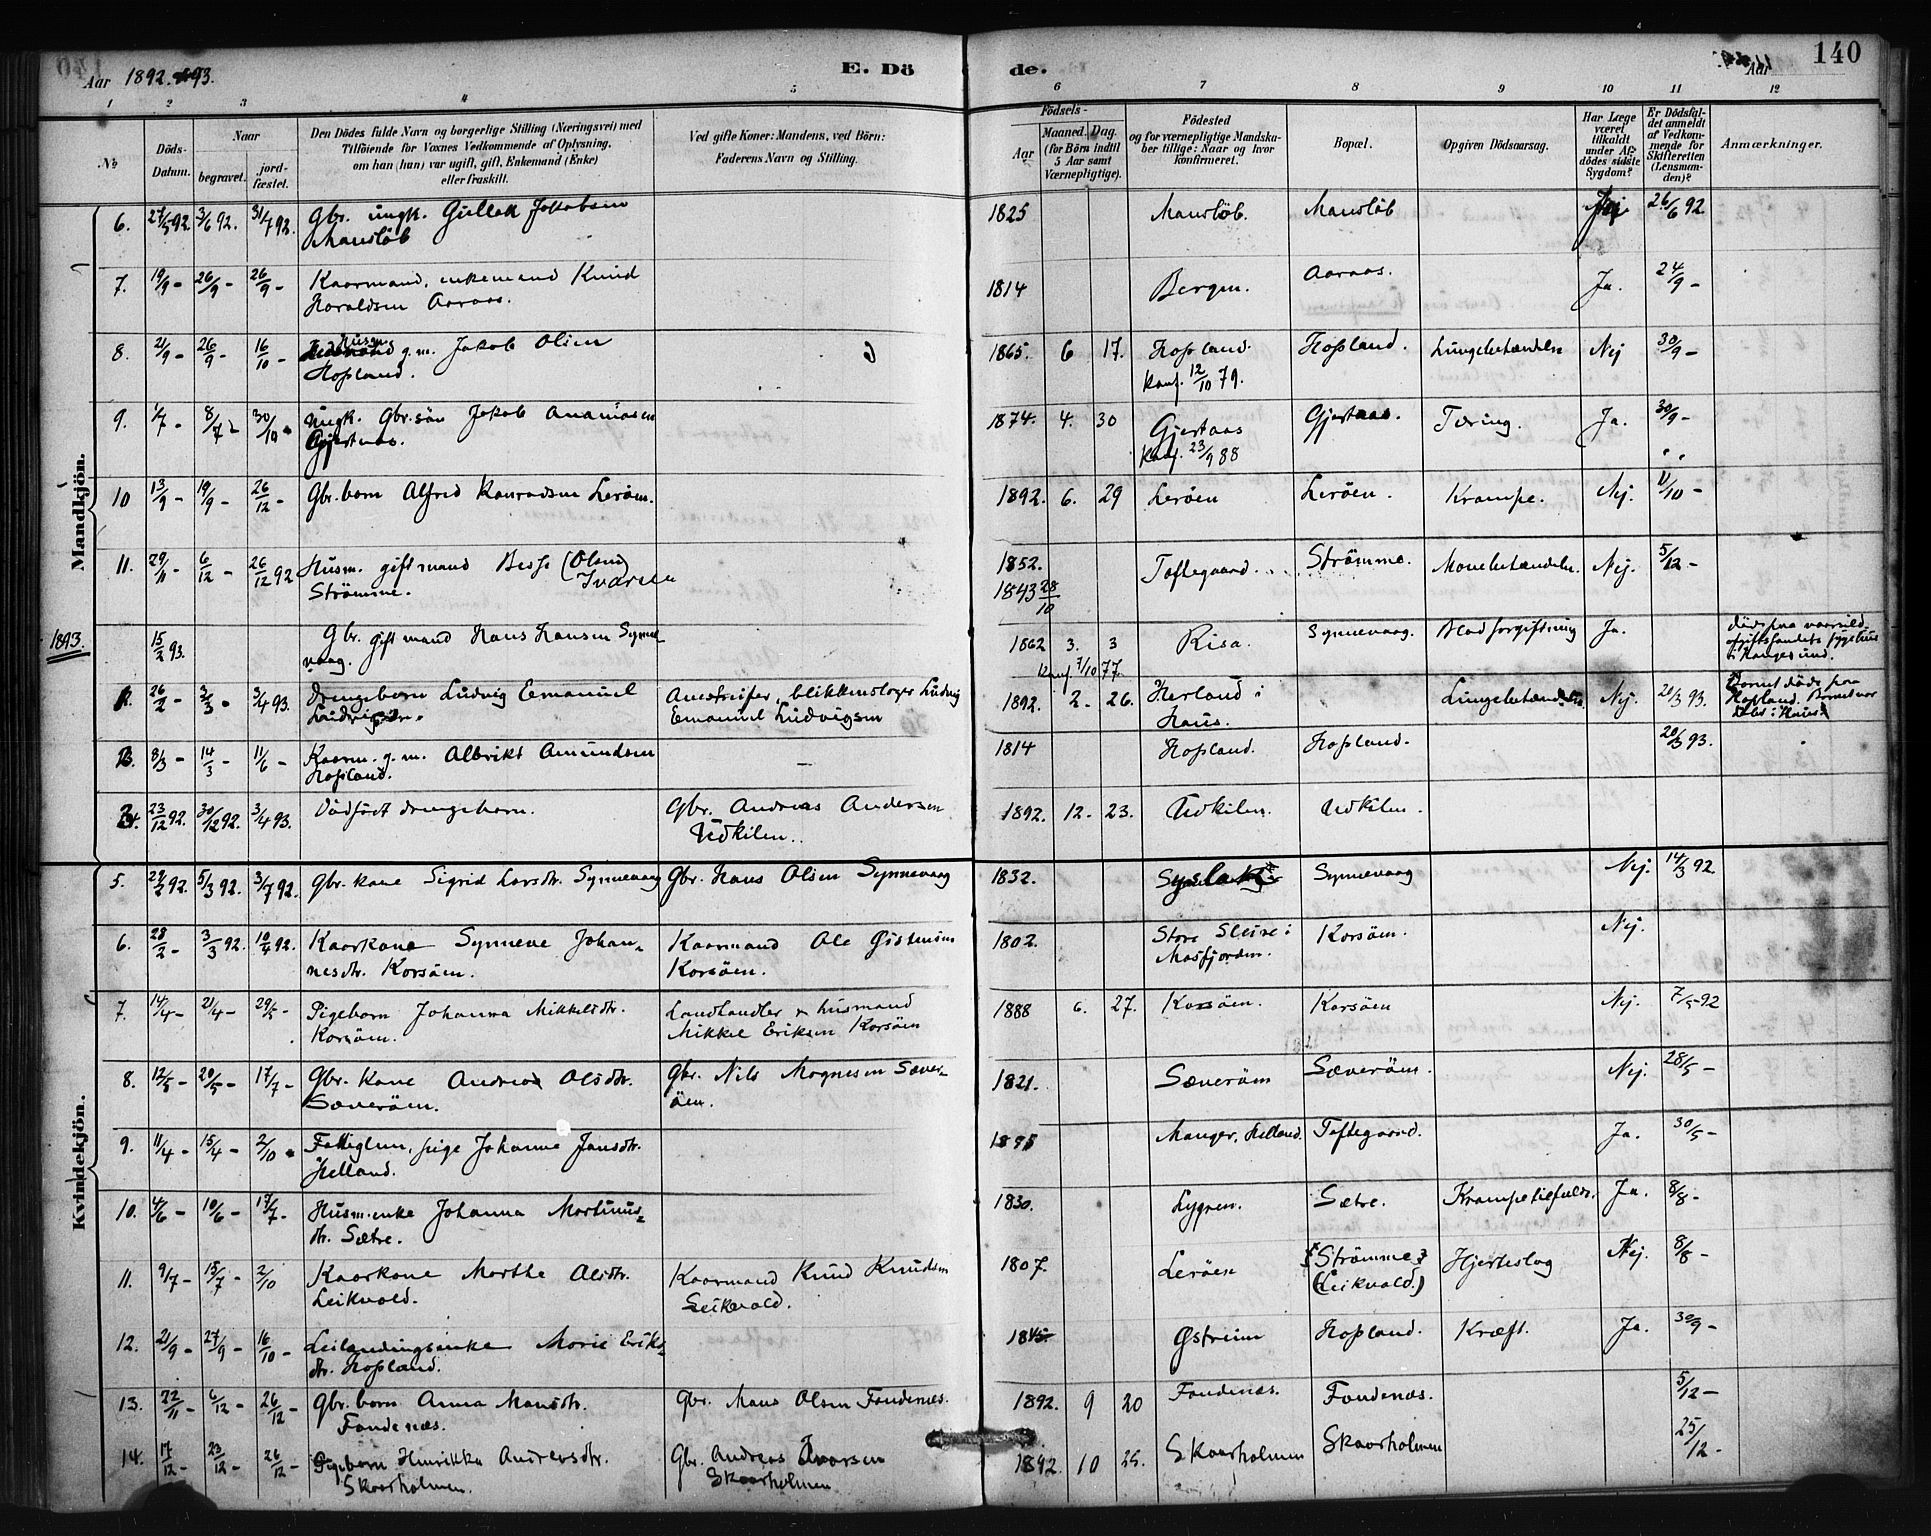 Aar 1892 93.
E. Dö
de.
Aar
140
1 2 3 4 5
6 7 8 9 10 11 12
No
Döds-
Datum.
Naar
begravet.
jord-
fæstet.
Den Dödes fulde Navn og borgerlige Stilling (Næringsvei) med
Tilföiende for Voxnes Vedkommende af Oplysning,
om han (hun) var ugift, gift, Enkemand (Enke)
eller fraskilt.
Ved gifte Koner: Mandens, ved Börn:
Faderens Navn og Stilling.
Födsels-
Aar
Maaned. Dag.
(for Börn indtil
5 Aar samt
Værnepligtige).
Födested
og for værnepligtige Mandska-
ber tillige: Naar og hvor
konfirmeret.
Bopæl.
Opgiven Dödsaarsag.
Har Læge
været
tilkaldt
under Af-
dödes sidste
Sygdom?
Er Dödsfal-
det anmeldt
af Vedkom-
mende for
Skifteretten
(Lensman-
den)?
Anmærkninger.
Mandkjön.
6. 27/5 92. 3/6 92. 31/7 92. Gbr. ungk. Gullak Jakobsen 1825 Mansløb. Mansløb Nej 26/6 92
Mansløb
7. 19/9 - 26/9 - 26/9 - Kaarmand, enkemand Knud 1814 Bergen. Aaraas. Ja. 24/9 -
Haraldsen Aaraas.
8. 21/9 - 26/9 - 16/10 - Husm. g.m. Jakob Olsen 1865. 6 17. Hopland. Hopland. Lungebetændelse Nej 30/9 -
Hopland. Konf. 12/10 79.
9. 1/7 - 8/7 - 30/10 - Ungk. Gbr.søn Jakob Ananiasen 1874. 4. 30 Gjertaas Gjertaas. Tæring. Ja. 30/9 -
Gjertaas. Konf. 23/9 88
10 13/9 - 19/9 - 26/12 - Gbr. barn Alfred Konradsen Lerøen. 1892. 6. 29 Lerøen Lerøen. Krampe. Nej. 11/10 -
11. 29/11 - 6/12 - 26/12 92 Husm. giftmand Besse (Olsen) 1852. Toftegaard. Strømme. Mavebetændelse. Nej. 5/12 -
Strømme. Ivarsen 1843 28/10
1893. 15/2 93. Gbr. giftmand Hans Hansen Synne- 1862 3. 3 Risa. Synnevaag. Blodforgiftning Ja. Døde paa
vaag. Konf. 7/10 77. i Haugesund.
26/2 - 3/3 - 3/4 93. Drengebarn Ludvig Emanuel Blikkenslager Ludvig 1892. 2. 26. Herland i Lungebetændelse Nej. 20/3 93. Barnet døde paa
Ludvigsen. Emanuel Ludvigsen Haus. Hopland. Barnet var
8/3 - 14/3 - 11/6 - Kaarm. g.m. Albrikt Amundsen 1814 Hopland. Hopland. 20/3 93.
Hopland.
23/12 92. 30/12 92. 3/4 93. Dødfødt drengebarn. Gbr. Andreas Andersen 1892. 12. 23. Udkilen. Udkilen.
Udkilen.
Kvindekjön.
5. 29/2 92. 5/3 92. 3/7 92. Gbr. kone Sigrid Larsdtr. Synnevaag Gbr. Hans Olsen Synnevaag 1832. Synnevaag Nej. 14/3 92.
6. 28/2 - 3/3 92. 10/4 92. Kaarkone Synneve Johan- Kaarmand Ole Østensen 1802. Store Sleire i Korsøen. Nej.
nesdtr. Korsøen. Korsøen. Masfjorden.
7. 14/4 - 21/4 - 29/5 - Pigebarn Johanna Mikkelsdtr. Landhandler & husmand 1888 6. 27. Korsøen. Korsøen Nej. 7/5 92
Korsøen. Mikkel Eriksen Korsøen
8. 12/5 - 20/5 - 17/7 - Gbr. kone Andrea Olsdtr. Gbr. Nils Mognesen Sæver- 1821. Sæverøen Sæverøen. Nej. 28/5 -
Sæverøen. øen.
9. 11/4 - 15/4 - 2/10 - Fattiglem, pige Johanne Jansdtr. Manger, Helland. Toftegaard. Ja. 30/5 -
Helland.
10. 4/6 - 10/6 - 17/7 - Husm.enke Johanna Martinus- 1830. Lygren. Sætre. Krampetilfælde. Ja. 8/8 -
dtr. Sætre.
11. 9/7 - 15/7 - 2/10 Kaarkone Marthe Olsdtr. Kaarmand Knud Knudsen 1807. Lerøen Strømme Hjerteslag Nej. 8/8 -
Leikvold. Leikvold. (Leikvold)
12. 21/9 - 27/9 - 16/10 - Leilændingsenke Marie Eriks- 1845. Østreim Hopland. Kræft. Ja. 30/9 -
dtr. Hopland.
13. 22/11 - 6/12 - 26/12 - Gbr. barn Anna Mansdtr. Gbr. Mans Olsen Fondenæs. 1892. 9 20 Fondenæs. Fondenæs. 5/12 -
Fondenæs.
14. 17/12 - 23/12 - 26/12 - Pigebarn Henrikka Andreasdtr. Gbr. Andreas Ivarsen 1892. 10 Skaarholmen Skaarholmen 25/12 -
Skaarholmen. Skaarholmen